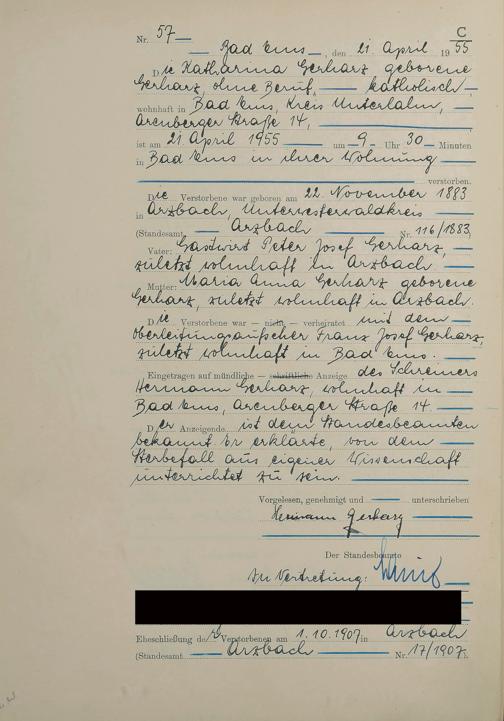 C
Nr. 57
Bad Ems, den 21 April 1955
Die Katharina Gerharz geborene
Gerharz, ohne Beruf, katholisch
wohnhaft in Bad Ems, Kreis Unterlahn,
Arenberger Straße 14,
ist am 21 April 1955 um 9 Uhr 30 Minuten
in Bad Ems in ihrer Wohnung
verstorben.
Die Verstorbene war geboren am 22. November 1883
in Arzbach, Unterwesterwaldkreis
(Standesamt Arzbach Nr. 116/1883)
Vater: Gastwirt Peter Josef Gerharz,
zuletzt wohnhaft in Arzbach
Mutter: Maria Anna Gerharz geborene
Gerharz, zuletzt wohnhaft in Arzbach.
Die Verstorbene war — nicht — verheiratet mit dem
Oberleitungsaufseher Franz Josef Gerharz,
zuletzt wohnhaft in Bad Ems.
Eingetragen auf mündliche — schriftliche — Anzeige des Schreiners
Hermann Gerharz, wohnhaft in
Bad Ems, Arenberger Straße 14.
Der Anzeigende ist dem Standesbeamten
bekannt. Er erklärte, von dem
Sterbefall aus eigener Wissenschaft
unterrichtet zu sein.
Vorgelesen, genehmigt und unterschrieben
Hermann Gerharz
Der Standesbeamte
In Vertretung:
Eheschließung der Verstorbenen am 1.10.1907 in Arzbach
(Standesamt Arzbach Nr. 17/1907).